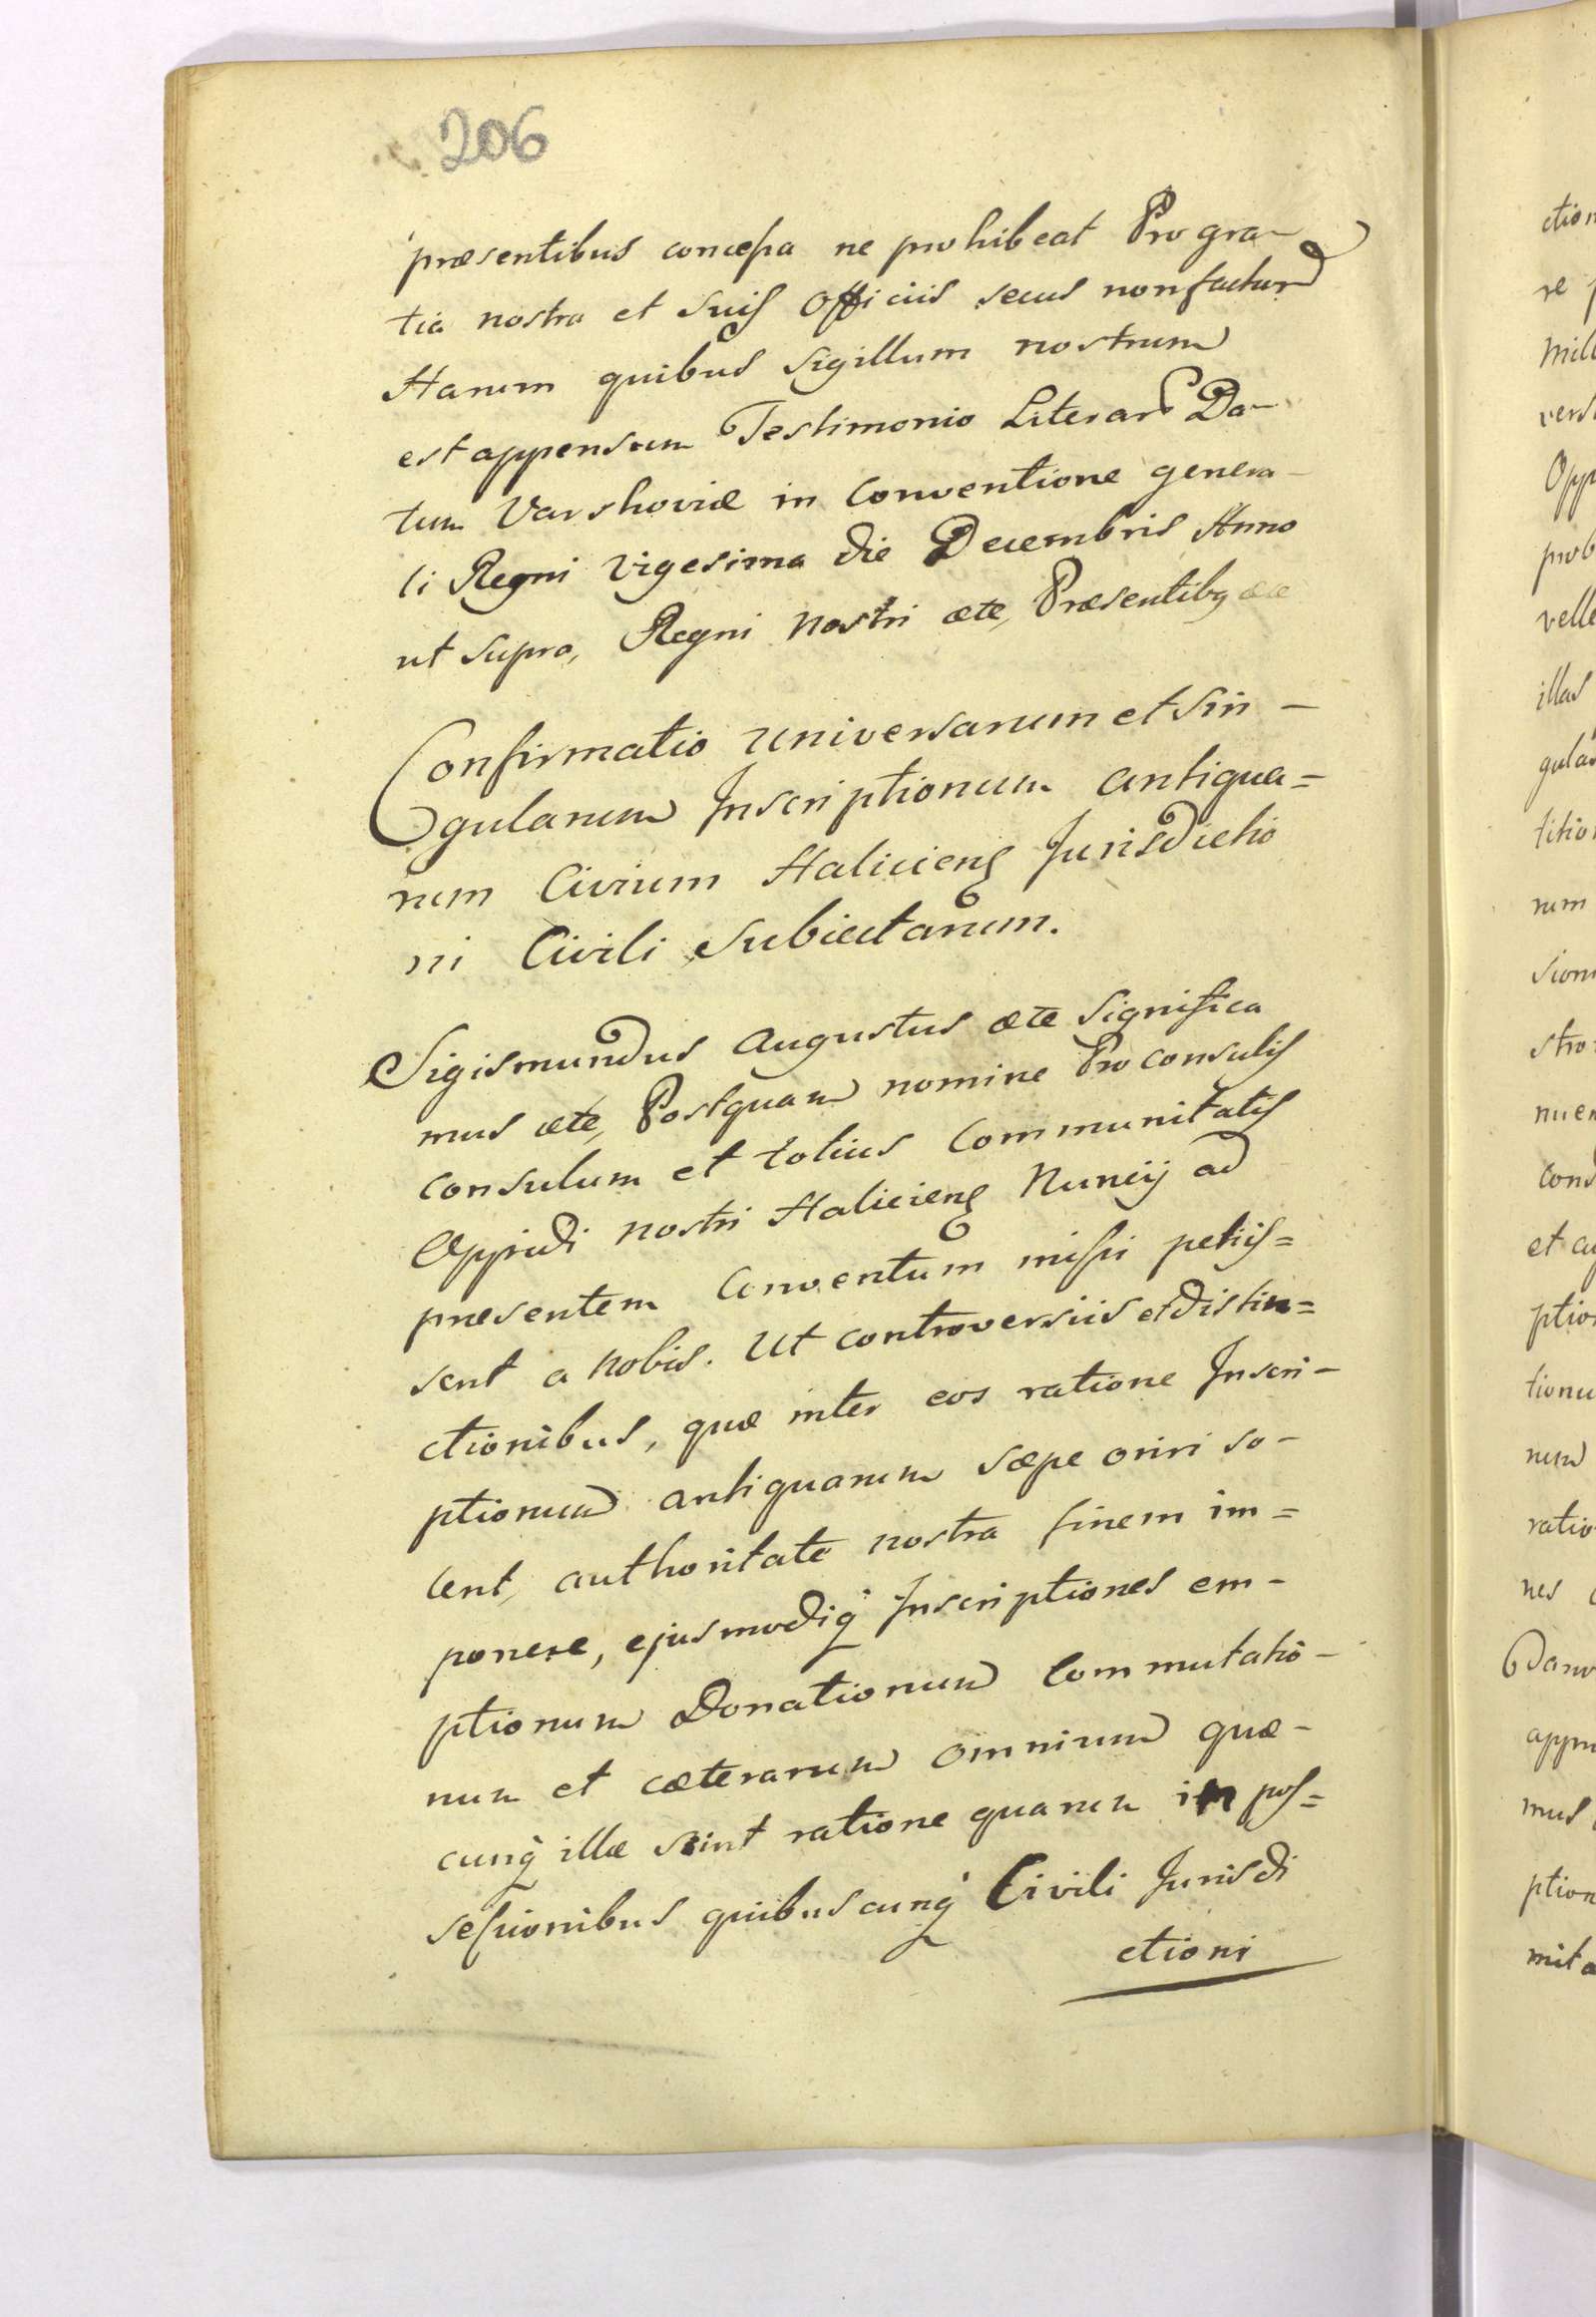 206
præsentibus concessa ne prohibeat Pro gra-
tia nostra et suis Officiis secus non factur
Harum quibus Sigillum nostrum
est appensum Testimonio Literar Da-
tum Varshoviæ in Conventione genera-
li Regni vigesima die Decembris Anno
ut supra, Regni nostri ætc, Præsentibq æce
Confirmatio universarum et sin-
gularum Inscriptionum antiqua=
rum Civium Haliciens Jurisdictio
ni Civili Subiectarum.
Sigismundus Augustus ætc Significa
mus ætc, Postquam nomine Proconsulis
Consulum et totius Communitatis
Oppidi nostri Haliciens Nuncij ad
præsentem Conventum missi petiis=
sent a nobis. Ut controversiis et distin=
ctionibus, quæ inter eos ratione Inscri-
ptionum antiquarum sæpe oriri so-
lent, authoritate nostra finem im=
ponere, ejusmodiq Inscriptiones em-
ptionum Donationum Commutatio-
num et cæterarum omnium quæ-
cunq illæ sint ratione quarum in pos=
sessionibus quibuscunq Civili Jurisdi
ctioni
ction
re
mil
vers
Opp
prob
velle
illas
gula
titio
rum
sion
stro
nuer
cons
et a
ptio
tionu
num
ratio
nes
Danu
appr
mus
ption
mit a